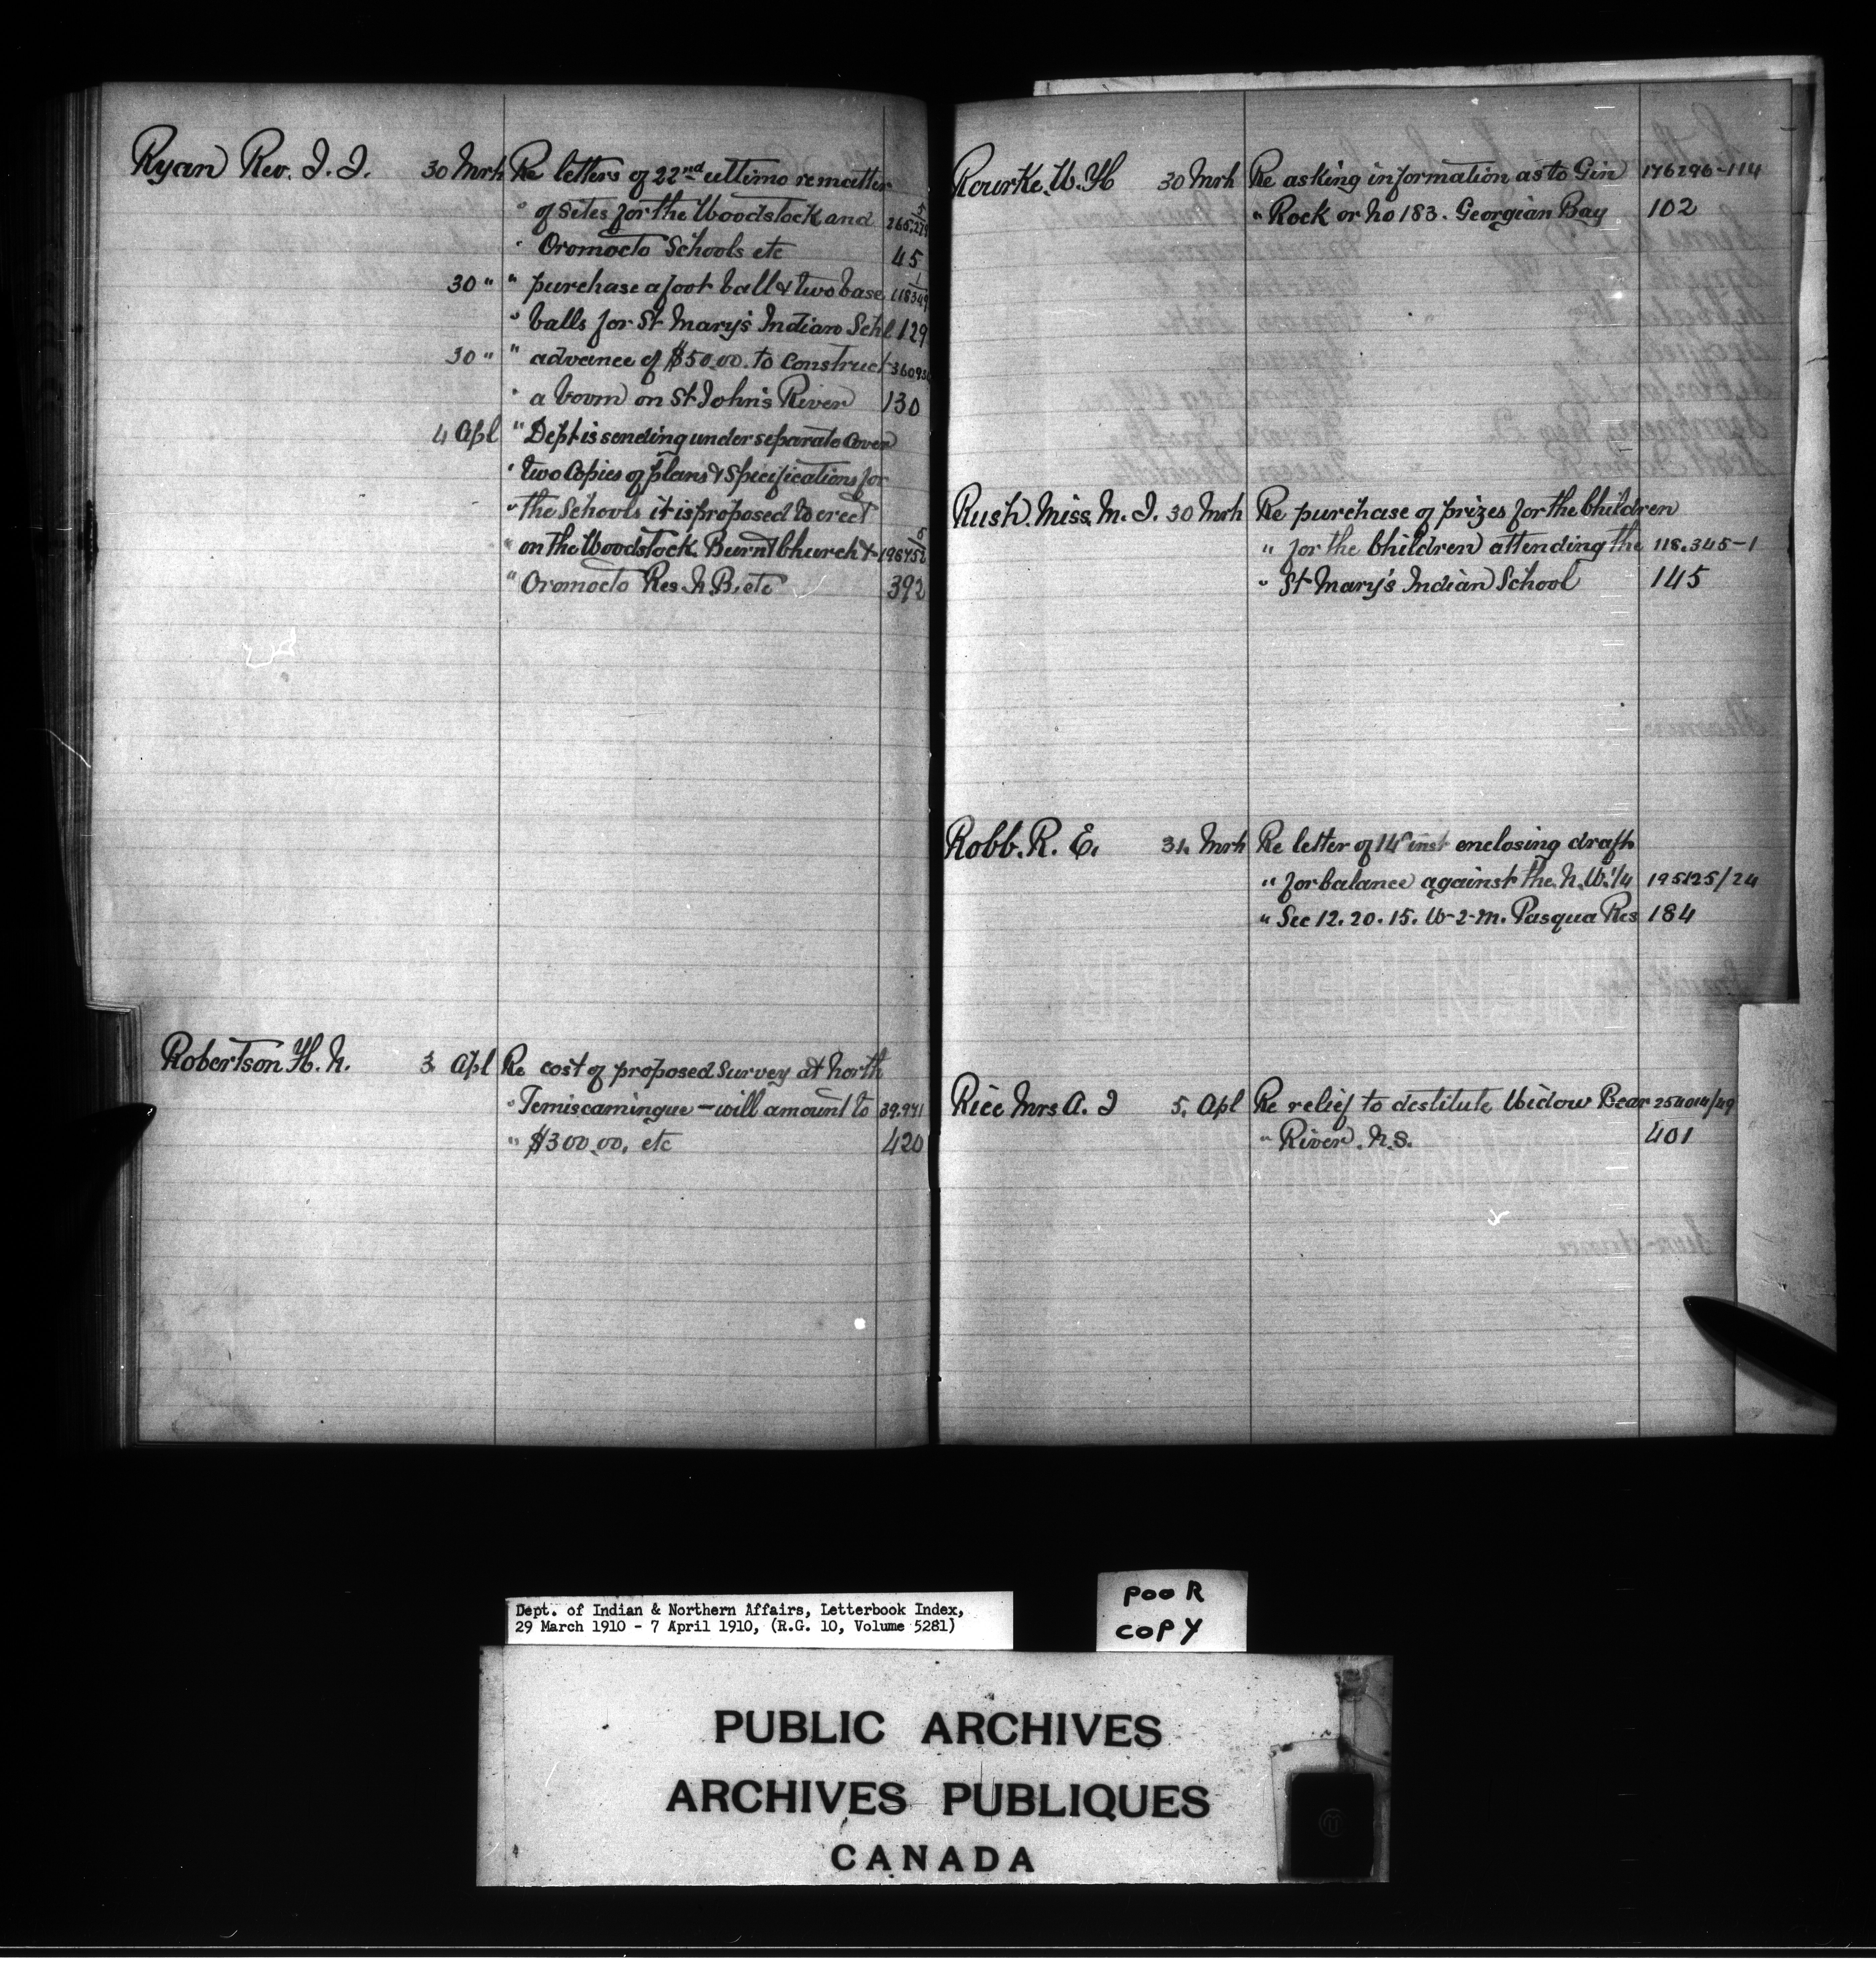 Ryan Rev. J. J. 30 Mrh Re letters of 22nd ultimo re matter
" of sites for the Woodstock and 5
" Oromocto Schools etc 45
30 " " purchase a foot ball & two base 118349 1
" balls for St Mary's Indian Schl 129
30 " " advance of $50.00. to construct
" a boom on St John's River 130
4 Apl " Dept is sending under separate cover
" two copies of plans & specifications for
" the Schools it is proposed to erect
" on the Woodstock. Burnt Church &
" Oromocto Res. N. B. etc 392
Robertson H. N. 3. Apl Re cost of proposed survey at North
" Temiscamingue - will amount to 39.941
" $300.00. etc 420
Rourke. W. H 30 Mrh Re asking information as to Gin 176296-114
" Rock or No 183. Georgian Bay 102
Rush. Miss. M. J. 30 Mrh Re purchase of prizes for the Children
" for the Children attending the 118.345-1
" St Mary's Indian School 145
Robb. R. E. 31. Mrh Re letter of 14" inst enclosing draft
" for balance against the N. W. 1/4 195125/24
" Sec 12. 20. 15. W-2-M. Pasqua Res 184
Rice Mrs A. J 5. Apl Re relief to destitute Widow Bear 254014/49
" River. N.S. 401
Dept. of Indian & Northern Affairs, Letterbook Index,
29 March 1910 - 7 April 1910, (R.G. 10, Volume 5281)
POOR
COPY
PUBLIC ARCHIVES
ARCHIVES PUBLIQUES
CANADA